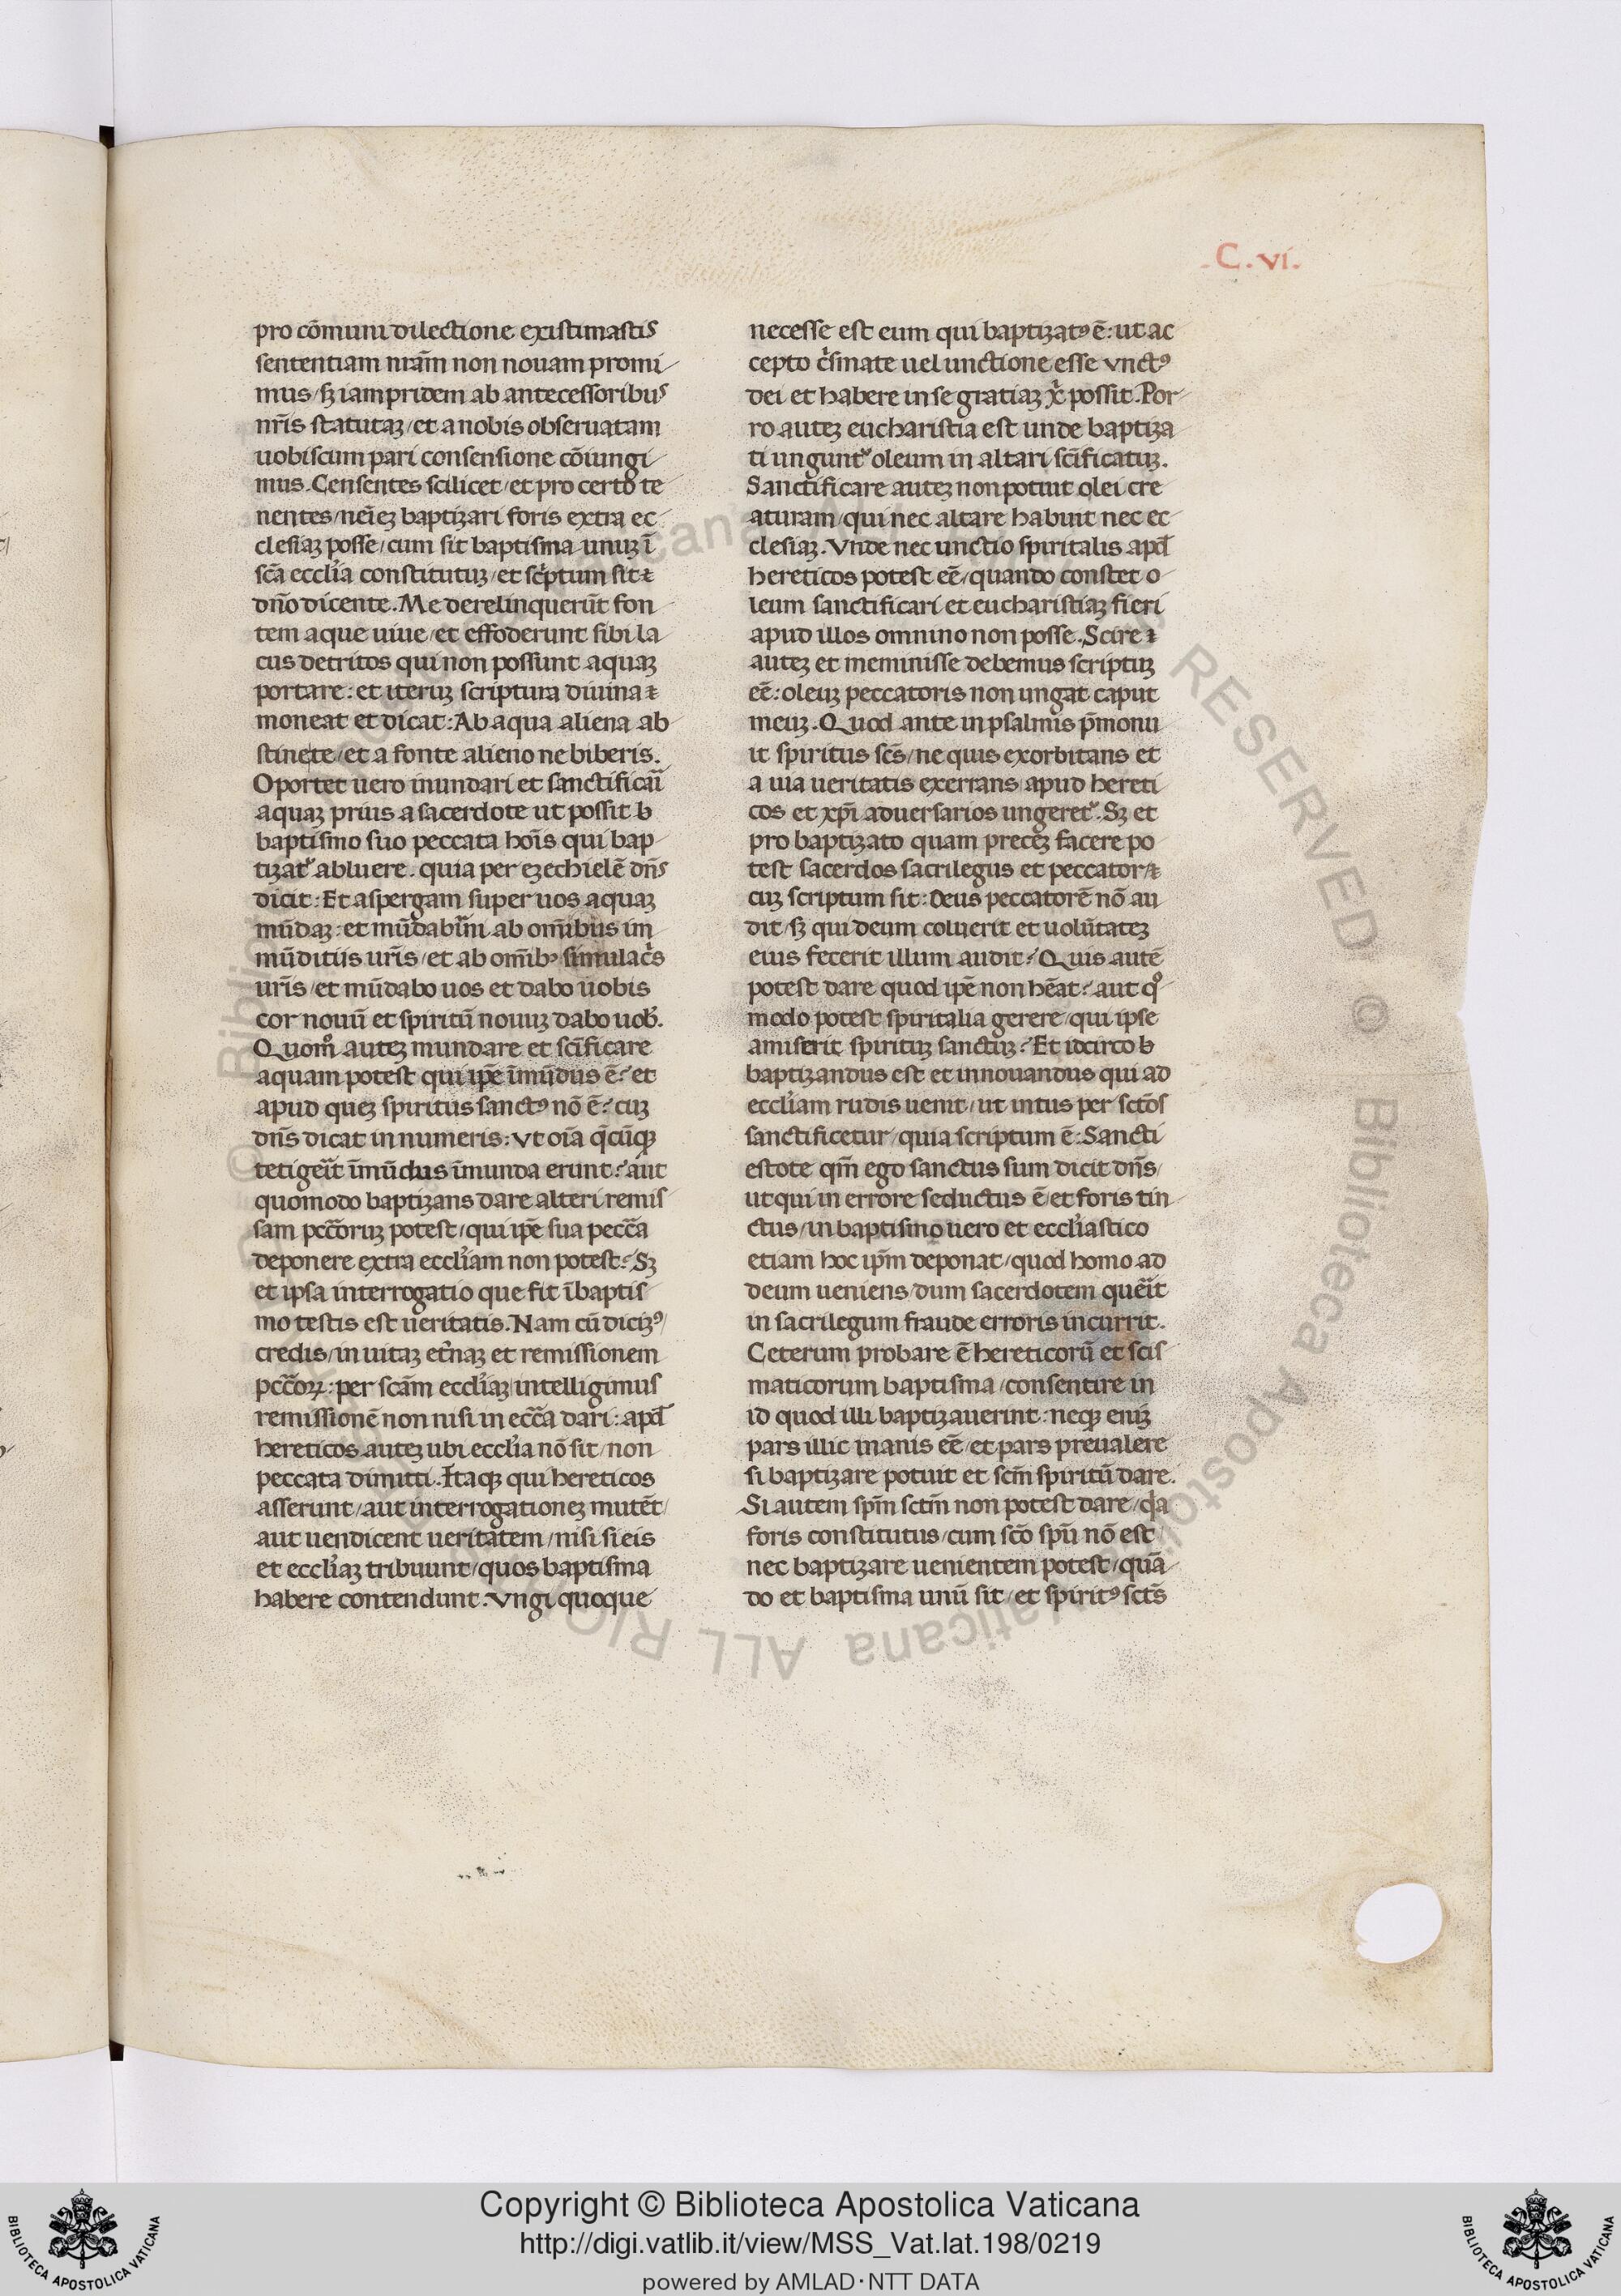 .C.vi.
pro cōmuni dilectione existimastis
sententiam nrā̄m non nouam promi
mus/sꝫ iampridem ab antecessoribus
nr̄is statutaꝫ/et a nobis obseruatam
uobiscum pari consensione cōiungi
mus. Censentes scilicet/et pro certo te
nentes/nēieꝫ baptizari foris extra ec
clesiaꝫ posse/cum sit baptisma unuꝫ ī
scā ecclīa constitutuꝫ/et scͥptum sit
dn̄o dicente. Me derelinquerūt fon
tem aque uiue/et effoderunt sibi la
cus detritos qui non possunt aquaꝫ
portare: et iteruꝫ scriptura diuina
moneat et dicat: Ab aqua aliena ab
stinete/et a fonte alieno ne biberis.
Oportet uero mundari et sanctificari
aquaꝫ prius a sacerdote ut possit b
baptismo suo peccata hoīs qui bap
tizat᷒ abluere. quia per ezechielē dn̄s
dicit: Et aspergam super uos aquaꝫ
mūdaꝫ: et mūdabim̄i ab om̄ibus im
mūditiis ur̄is/et ab om̄ibꝫ simulacͥs
ur̄is/et mūdabo uos et dabo uobis
cor nouū et spiritū nouuꝫ dabo uob̄.
Quom̊ auteꝫ mundare et scīficare
aquam potest qui ip̄e īmūdus ē? et
apud queꝫ spiritus sanctꝰ nō ē? cuꝫ
dn̄s dicat in numeris: Vt oīa q̄cūqꝫ
tetigerit īmūdus īmunda erunt? aut
quomodo baptizans dare alteri remis
sam pcc̄oruꝫ potest/qui ip̄e sua pecc̄a
deponere extra eccl̄iam non potest? Sꝫ
et ipsa interrogatio que fit ī baptis
mo testis est ueritatis. Nam cū dicimꝰ/
credis/in uitaꝫ et̄naꝫ et remissionem
pcc̄oꝝ: per scām eccl̄iaꝫ intelligimus
remissionē non nisi in ecc̄a dari: apd̄
hereticos auteꝫ ubi eccl̄ia nō sit/non
peccata dimitti. Itaqꝫ qui hereticos
asserunt/aut interrogationeꝫ mutēt/
aut uendicent ueritatem/nisi si eis
et eccl̄iaꝫ tribuunt/quos baptisma
habere contendunt. Vngi quoque
necesse est eum qui baptizatꝰ ē: ut ac
cepto cͥsmate uel unctione esse vnctꝰ
dei et habere in se gratiaꝫ xͥ possit. Por
ro auteꝫ eucharistia est unde baptiza
ti ungunt᷒ oleum in altari scīficatuꝫ.
Sanctificare auteꝫ non potuit olei cre
aturam/qui nec altare habuit nec ec
clesiaꝫ. Vnde nec unctio spiritalis apd̄
hereticos potest eē/quando constet o
leum sanctificari et eucharistiaꝫ fieri
apud illos omnino non posse. Scire
auteꝫ et meminisse debemus scriptuꝫ
eē: oleuꝫ peccatoris non ungat caput
meuꝫ. Quod ante in psalmis p̄monu
it spiritus sc̄s/ne quis exorbitans et
a uia ueritatis exerrans apud hereti
cos et xp̄i aduersarios ungeret᷒. Sꝫ et
pro baptizato quam preceꝫ facere po
test sacerdos sacrilegus et peccator/
cuꝫ scriptum sit: Deus peccatorē nō au
dit/sꝫ qui deum coluerit et uolūtateꝫ
eius fecerit illum audit? Quis autē
potest dare quod ip̄e non hēat? aut qͦ
modo potest spiritalia gerere/qui ipse
amiserit spirituꝫ sanctuꝫ? Et idcirco b
baptizandus est et innouandus qui ad
eccl̄iam rudis uenit/ut intus per sctōs
sanctificetur/quia scriptum ē: Sancti
estote qm̄ ego sanctus sum dicit dn̄s/
ut qui in errore seductus ē/et foris tin
ctus/in baptismo uero et eccl̄iastico
etiam hoc ip̄m deponat/quod homo ad
deum ueniens/dum sacerdotem querit
in sacrilegum fraude erroris incurrit.
Ceterum probare ē hereticorū et scis
maticorum baptisma/consentire in
id quod illi baptizauerint: neqꝫ eniꝫ
pars illic inanis eē/et pars preualere
si baptizare potuit et scm̄ spiritū dare.
Si autem sp̄m sctm̄ non potest dare/qͥa
foris constitutus/cum sc̄o spū nō est/
nec baptizare uenientem potest/quā
do et baptisma unū sit/et spiritꝰ sct̄s
Copyright © Biblioteca Apostolica Vaticana
http://digi.vatlib.it/view/MSS_Vat.lat.198/0219
powered by AMLAD·NTT DATA
BIBLIOTECA APOSTOLICA VATICANA
BIBLIOTECA APOSTOLICA VATICANA
© Biblioteca Apostolica Vaticana ALL RIGHTS RESERVED © Biblioteca Apostolica Vaticana ALL RIGHTS RESERVED